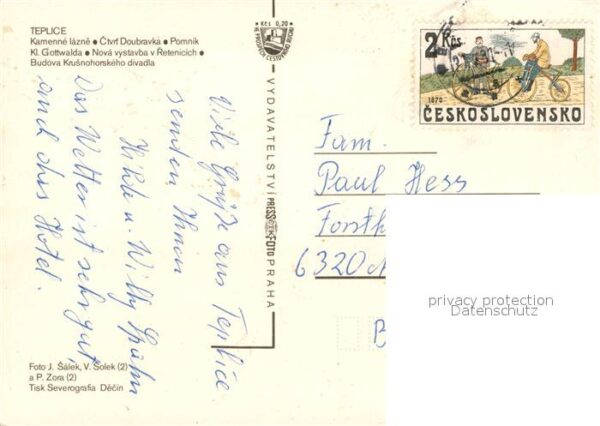 TEPLICE
Kamenné lázně ● Čtvrť Doubravka ● Pomník
Kl. Gottwalda ● Nová výstavba v Řetenicích ●
Budova Krušnohorského divadla
Viele Grüße aus Teplice
senden Ihnen
Hilde u. Willy Spahn
Das Wetter ist sehr gut,
und das Hotel.
Foto J. Šálek, V. Šolek (2)
a P. Zora (2)
Tisk Severografia Děčín
Kčs 0,20
VYDAVATELSTVÍ PRESSFOTO PRAHA
2 Kčs
1870
ČESKOSLOVENSKO
Fam.
Paul Hess
Forsth
6320
B
privacy protection
Datenschutz